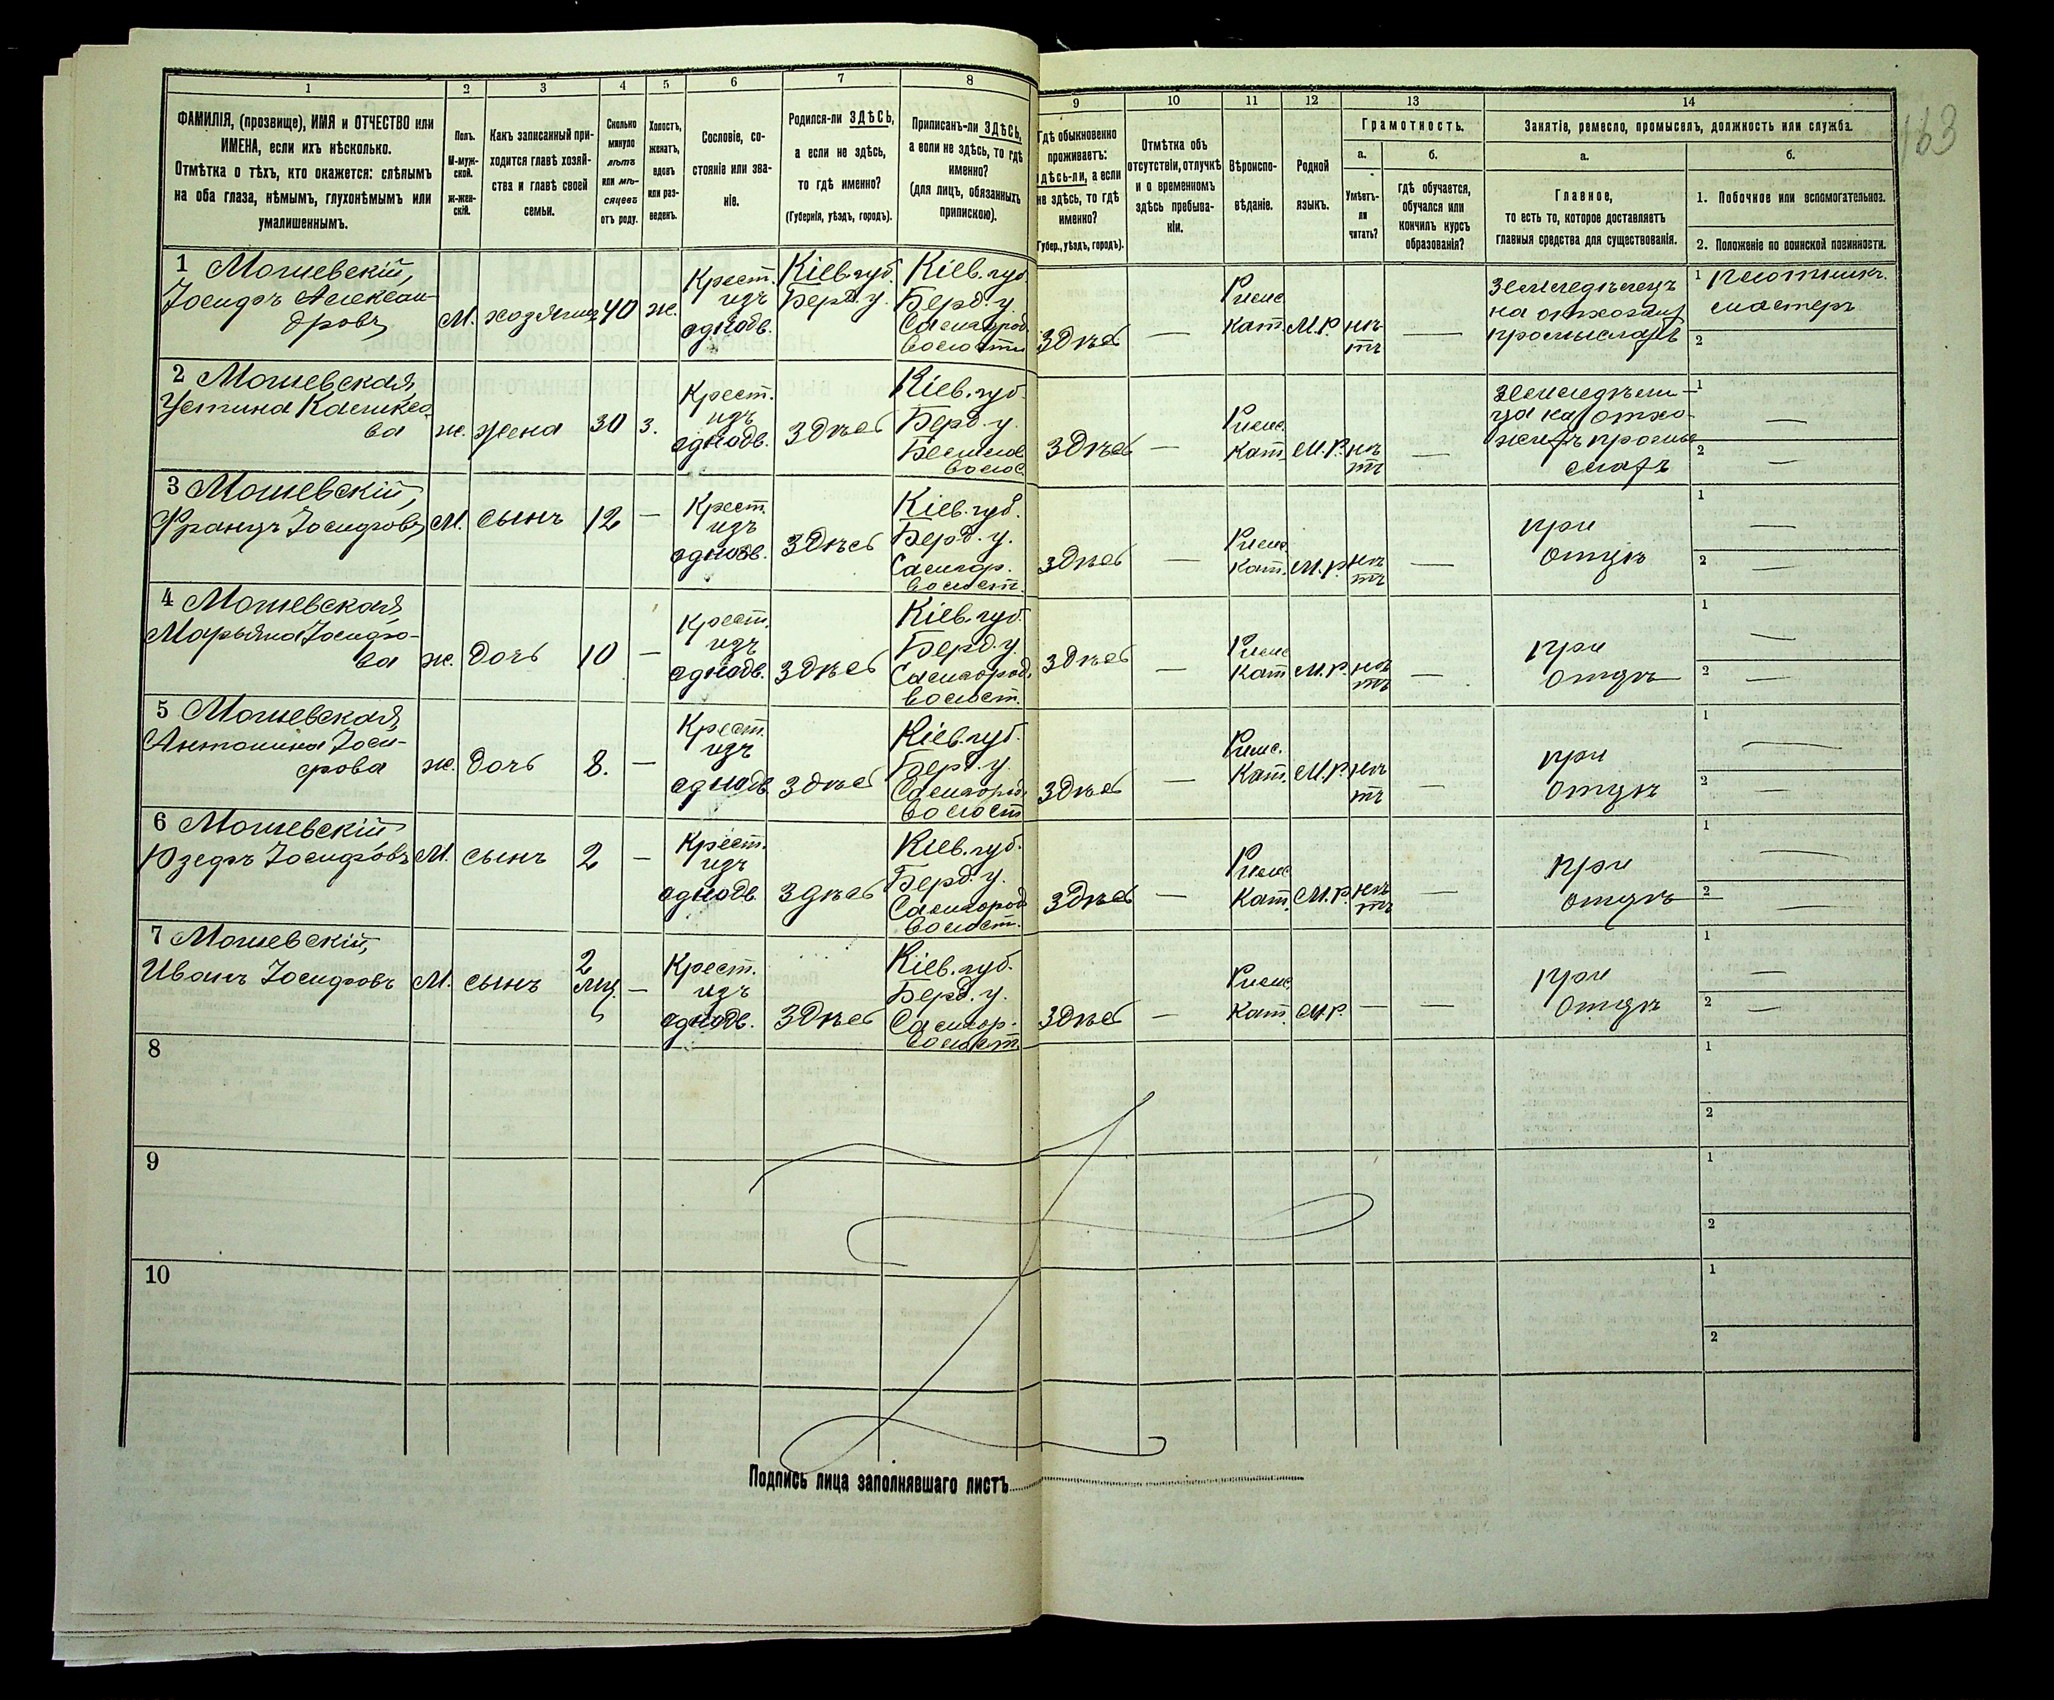 163
1 2 3 4 5 6 7 8 9 10 11 12 13 14
ФАМИЛІЯ, (прозвище), ИМЯ и ОТЧЕСТВО или
ИМЕНА, если ихъ нѣсколько.
Отмѣтка о тѣхъ, кто окажется: слѣпымъ
на оба глаза, нѣмымъ, глухонѣмымъ или
умалишеннымъ.
Полъ.
М-муж-
ской.
Ж-жен-
скій.
Какъ записанный при-
ходится главѣ хозяй-
ства и главѣ своей
семьи.
Сколько
минуло
лѣтъ
или мѣ-
сяцевъ
отъ роду.
Холостъ,
женатъ,
вдовъ
или раз-
веденъ.
Сословіе, со-
стояніе или зва-
ніе.
Родился-ли ЗДѢСЬ,
а если не здѣсь,
то гдѣ именно?
(Губернія, уѣздъ, городъ).
Приписанъ-ли ЗДѢСЬ,
а если не здѣсь, то гдѣ
именно?
(для лицъ, обязанныхъ
припискою).
Гдѣ обыкновенно
проживаетъ:
здѣсь-ли, а если
не здѣсь, то гдѣ
именно?
(Губер., уѣздъ, городъ).
Отмѣтка объ
отсутствіи, отлучкѣ
и о временномъ
здѣсь пребыва-
ніи.
Вѣроиспо-
вѣданіе.
Родной
языкъ.
Грамотность.
а.
Умѣетъ-
ли
читать?
б.
гдѣ обучается,
обучался или
кончилъ курсъ
образованія?
Занятіе, ремесло, промыселъ, должность или служба.
а.
Главное,
то есть то, которое доставляетъ
главныя средства для существованія.
б.
1. Побочное или вспомогательное.
2. Положеніе по воинской повинности.
1 Могилевскій,
Іосифъ Алексан-
дровъ
М. хозяинъ 40 ж.
Крест.
изъ
однодв.
Кіев. губ.
Берд. у.
Кіев. губ.
Берд. у.
Самгород.
волости
Здѣсь —
Римс.
Кат. М.Р. нѣ-
тъ —
земледѣлецъ
на отхожихъ
промыслахъ
1 Плотникъ.
мастеръ
2
2
Ж. жена 30 з.
Крест.
изъ
однодв.
Здѣсь
Кіев. губ.
Берд. у.
Здѣсь —
Римс.
Кат. М.Р. нѣ
тъ —
1 —
2 —
3
Францъ Іосифовъ М. сынъ 12 —
Крест.
изъ
однодв.
Здѣсь
Кіев. губ.
Берд. у.
Самгор.
волост.
Здѣсь —
Римс.
Кат. М.Р. нѣ
тъ —
при
отцѣ
1 —
2 —
4
Марьяна Іосифо-
ва ж. дочь 10 —
Крест.
изъ
однодв.
Здѣсь
Кіев. губ.
Берд. у.
Самгород.
волост.
Здѣсь —
Римс.
Кат. М.Р. нѣ
тъ —
при
отцѣ
1 —
2 —
5
Антонина Іоси-
фова ж. дочь 8. —
Крест.
изъ
однодв.
Здѣсь
Кіев. губ.
Берд. у.
Самгород.
волост
Здѣсь —
Римс.
Кат. М.Р. нѣ
тъ —
при
отцѣ
1 —
2 —
6
Юзефъ Іосифовъ М. сынъ 2 —
Крест.
изъ
однодв.
Здѣсь
Кіев. губ.
Берд. у.
Самгород
волост.
Здѣсь —
Римс.
Кат. М.Р. нѣ
тъ —
при
отцѣ
1 —
2 —
7
Иванъ Іосифовъ М. сынъ 2
мц. —
Крест.
изъ
однодв.
Здѣсь
Кіев. губ.
Берд. у.
Самгор.
волост
Здѣсь —
Римс.
Кат. М.Р. — —
при
отцѣ
1 —
2 —
8
1
2
9
1
2
10
1
2
Подпись лица заполнявшаго листъ